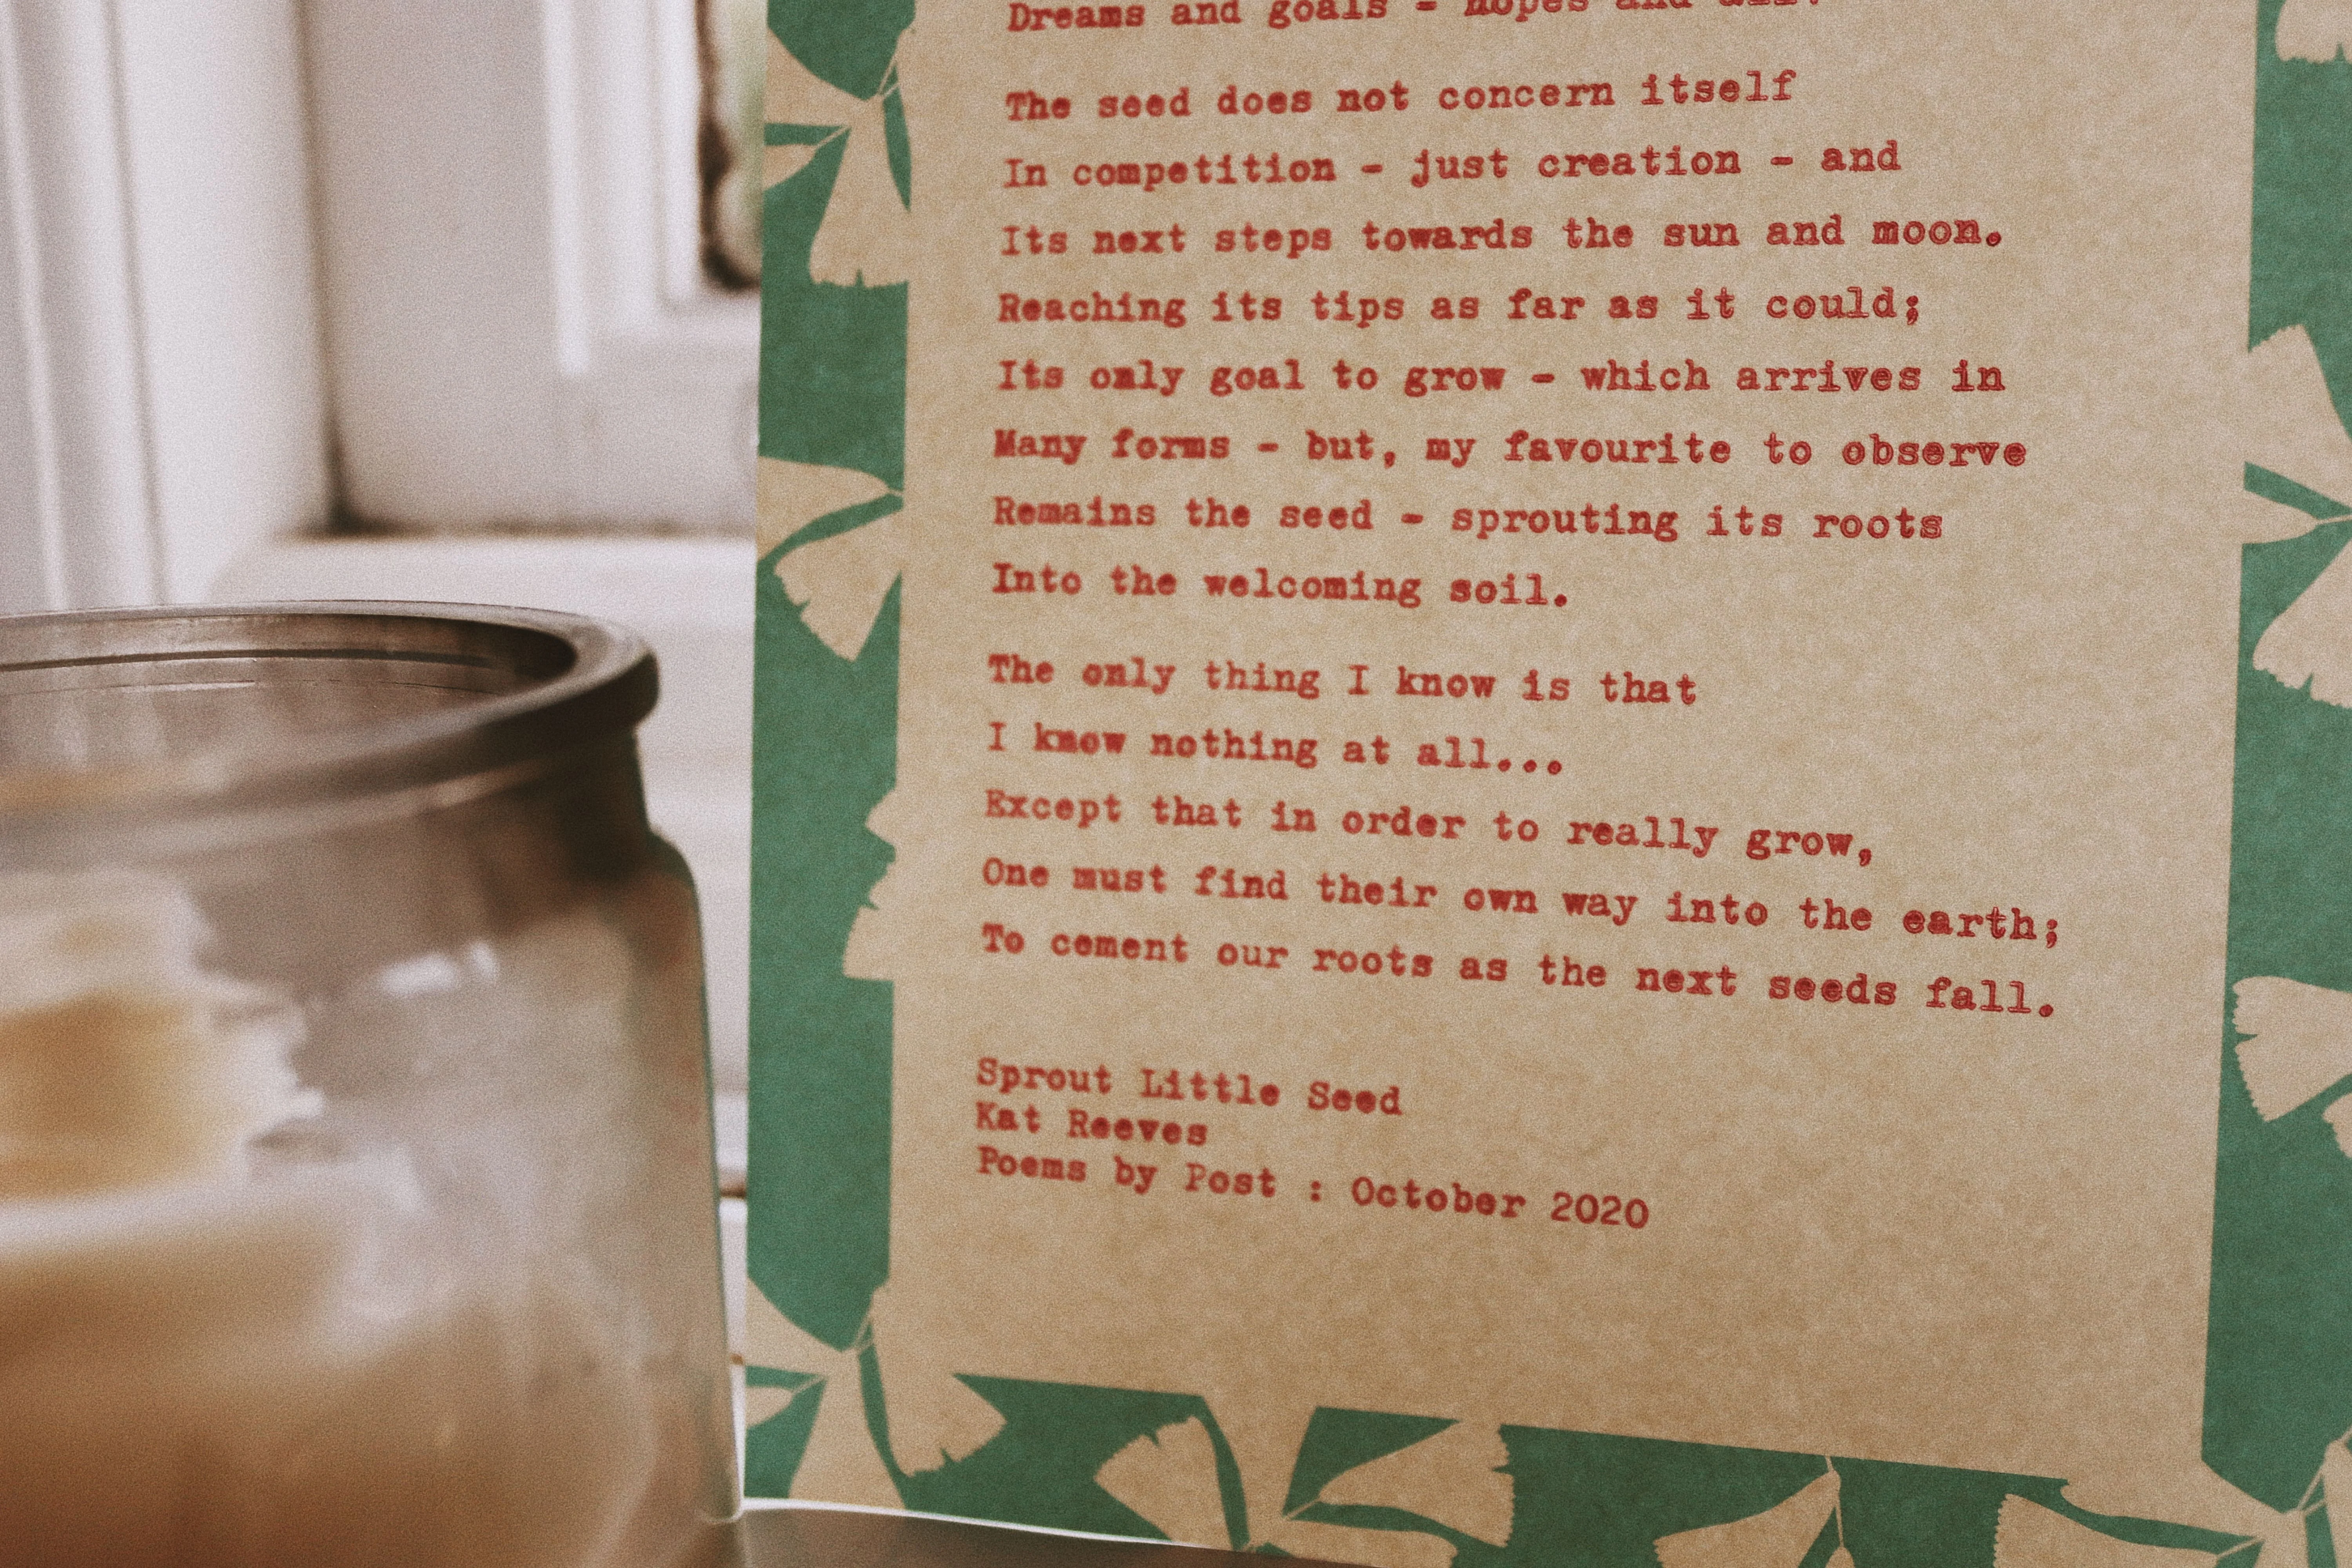 Dreams and goals - hopes and all.
The seed does not concern itself
In competition - just creation - and
Its next steps towards the sun and moon.
Reaching its tips as far as it could;
Its only goal to grow - which arrives in
Many forms - but, my favourite to observe
Remains the seed - sprouting its roots
Into the welcoming soil.
The only thing I know is that
I know nothing at all...
Except that in order to really grow,
One must find their own way into the earth;
To cement our roots as the next seeds fall.
Sprout Little Seed
Kat Reeves
Poems by Post : October 2020